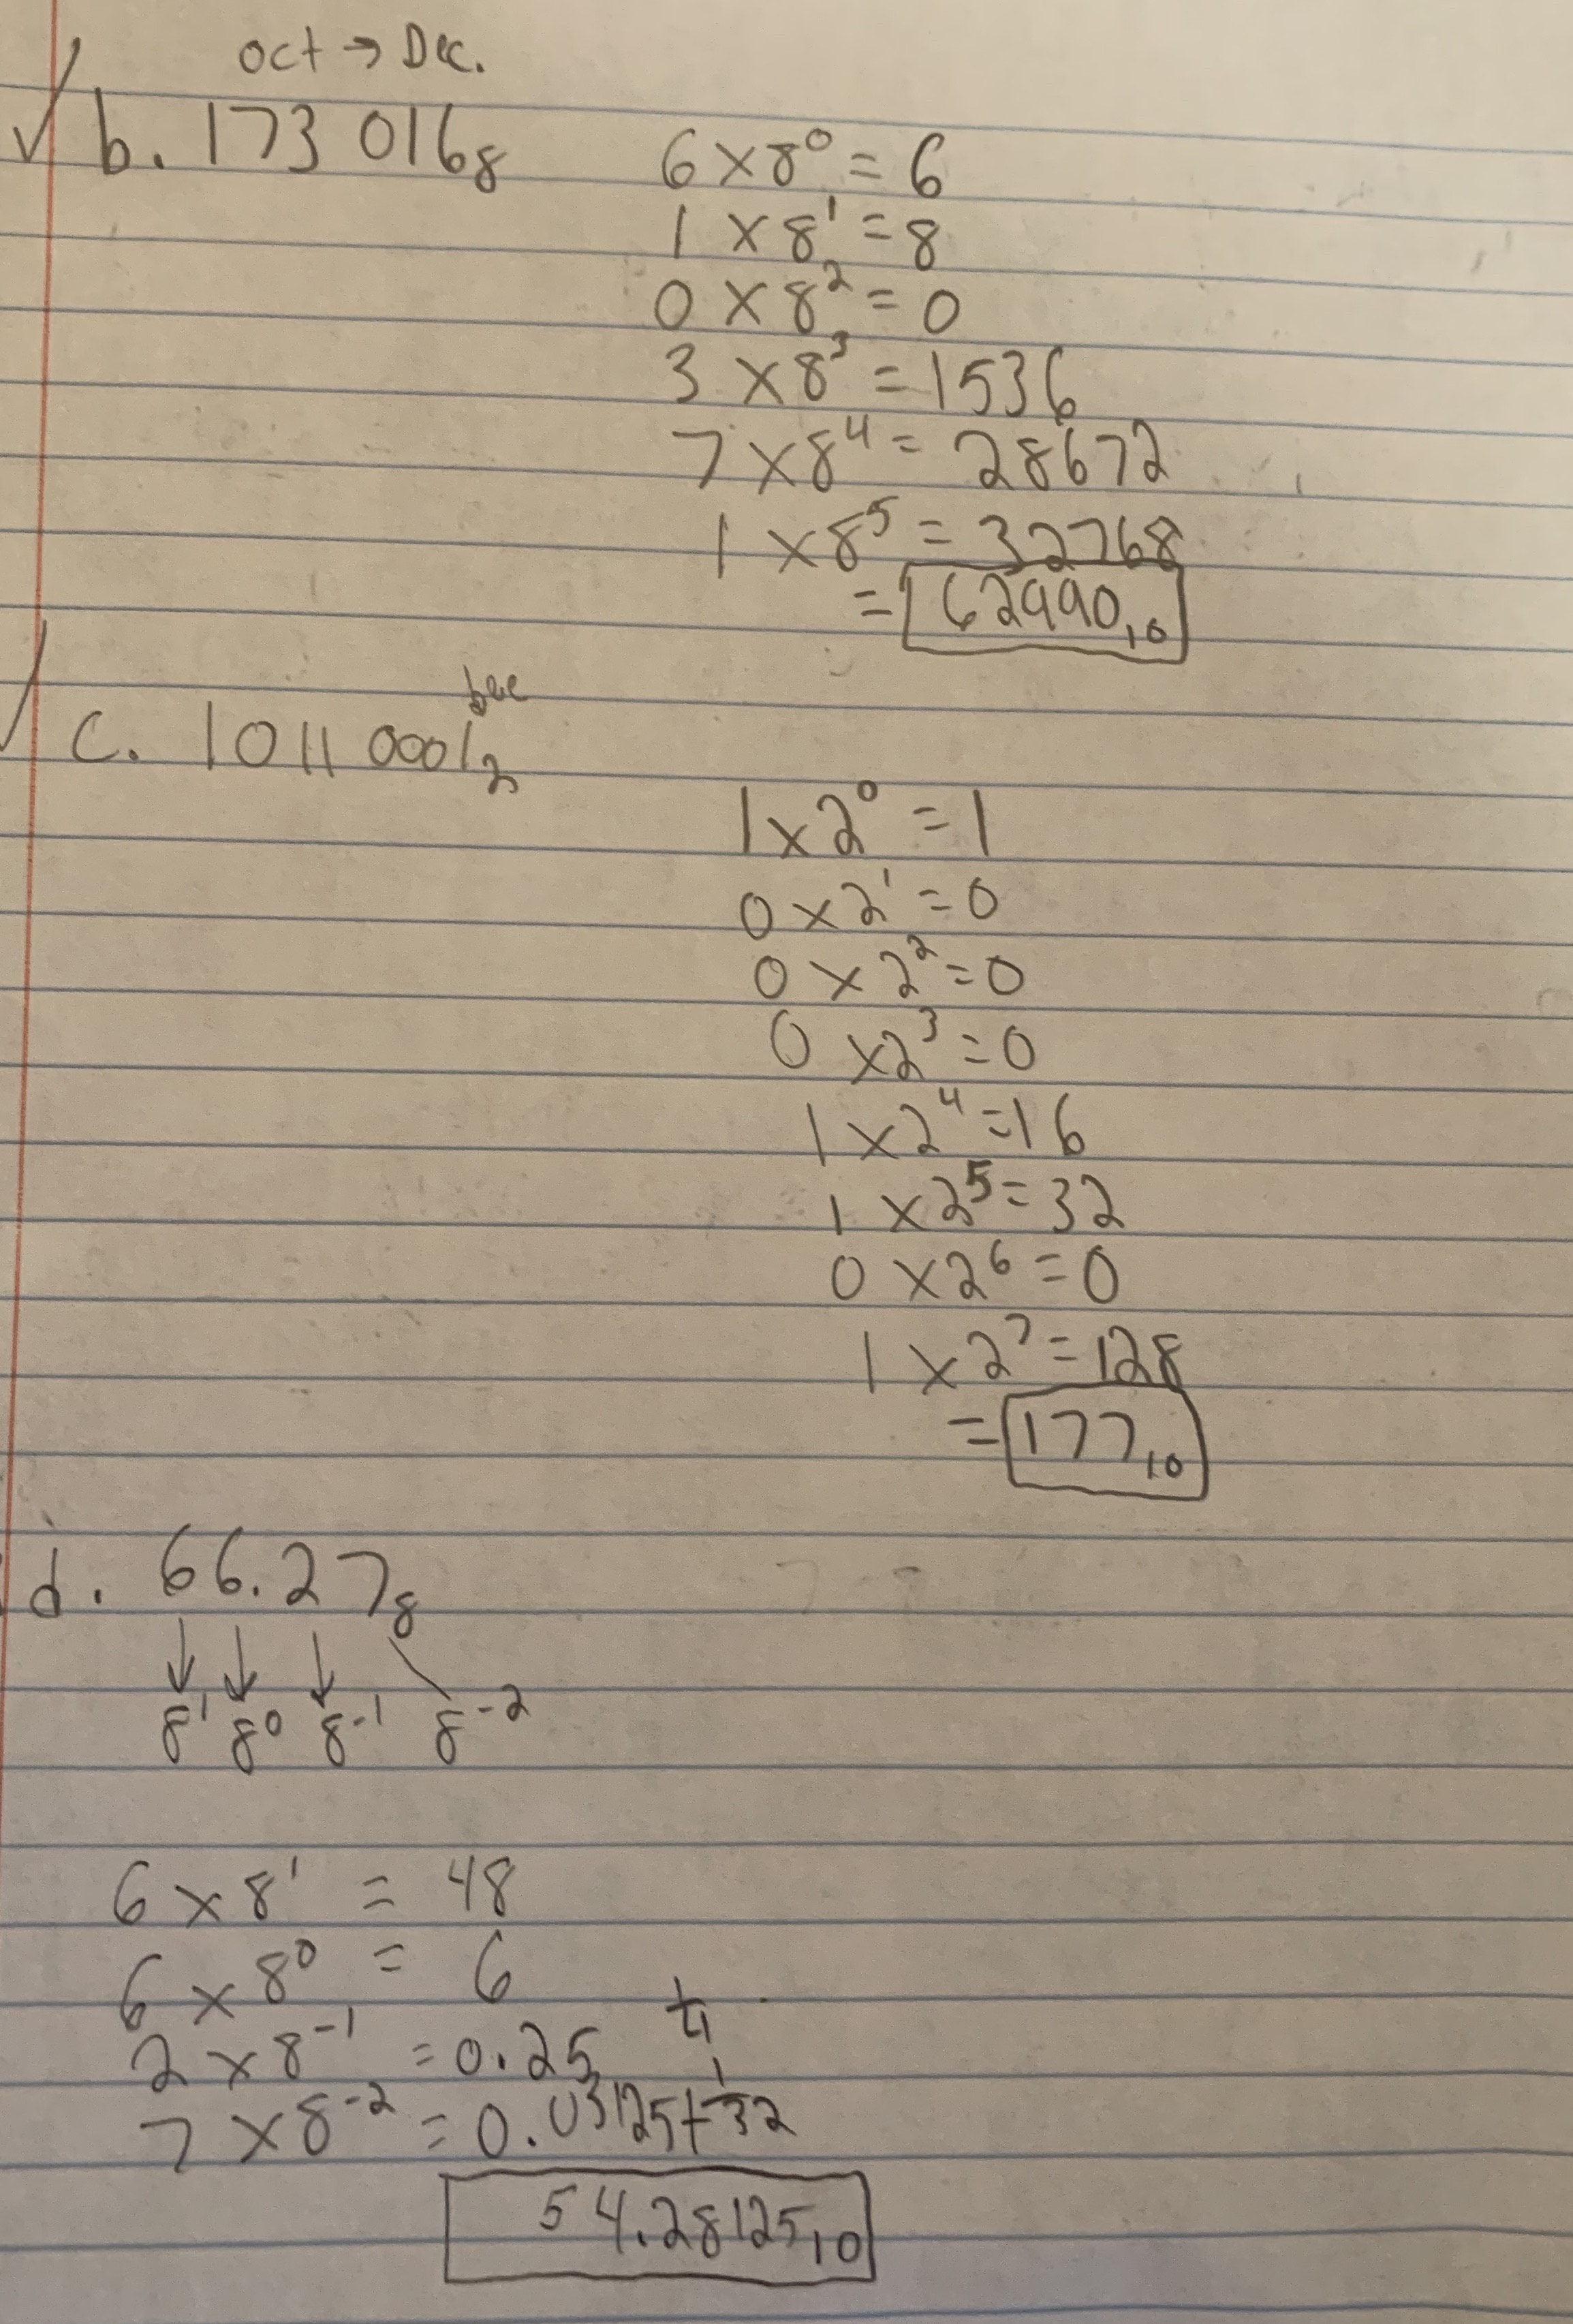 ✓ oct → Dec.
b. 173 016₈
6 × 8⁰ = 6
1 × 8¹ = 8
0 × 8² = 0
3 × 8³ = 1536
7 × 8⁴ = 28672
1 × 8⁵ = 32768
= 62990₁₀
✓ c. 1011 0001₂
1 × 2⁰ = 1
0 × 2¹ = 0
0 × 2² = 0
0 × 2³ = 0
1 × 2⁴ = 16
1 × 2⁵ = 32
0 × 2⁶ = 0
1 × 2⁷ = 128
= 177₁₀
d. 66.27₈
↓ ↓ ↓ \
8¹ 8⁰ 8⁻¹ 8⁻²
6 × 8¹ = 48
6 × 8⁰ = 6
2 × 8⁻¹ = 0.25 1/4
7 × 8⁻² = 0.03125 + 1/32
54.28125₁₀